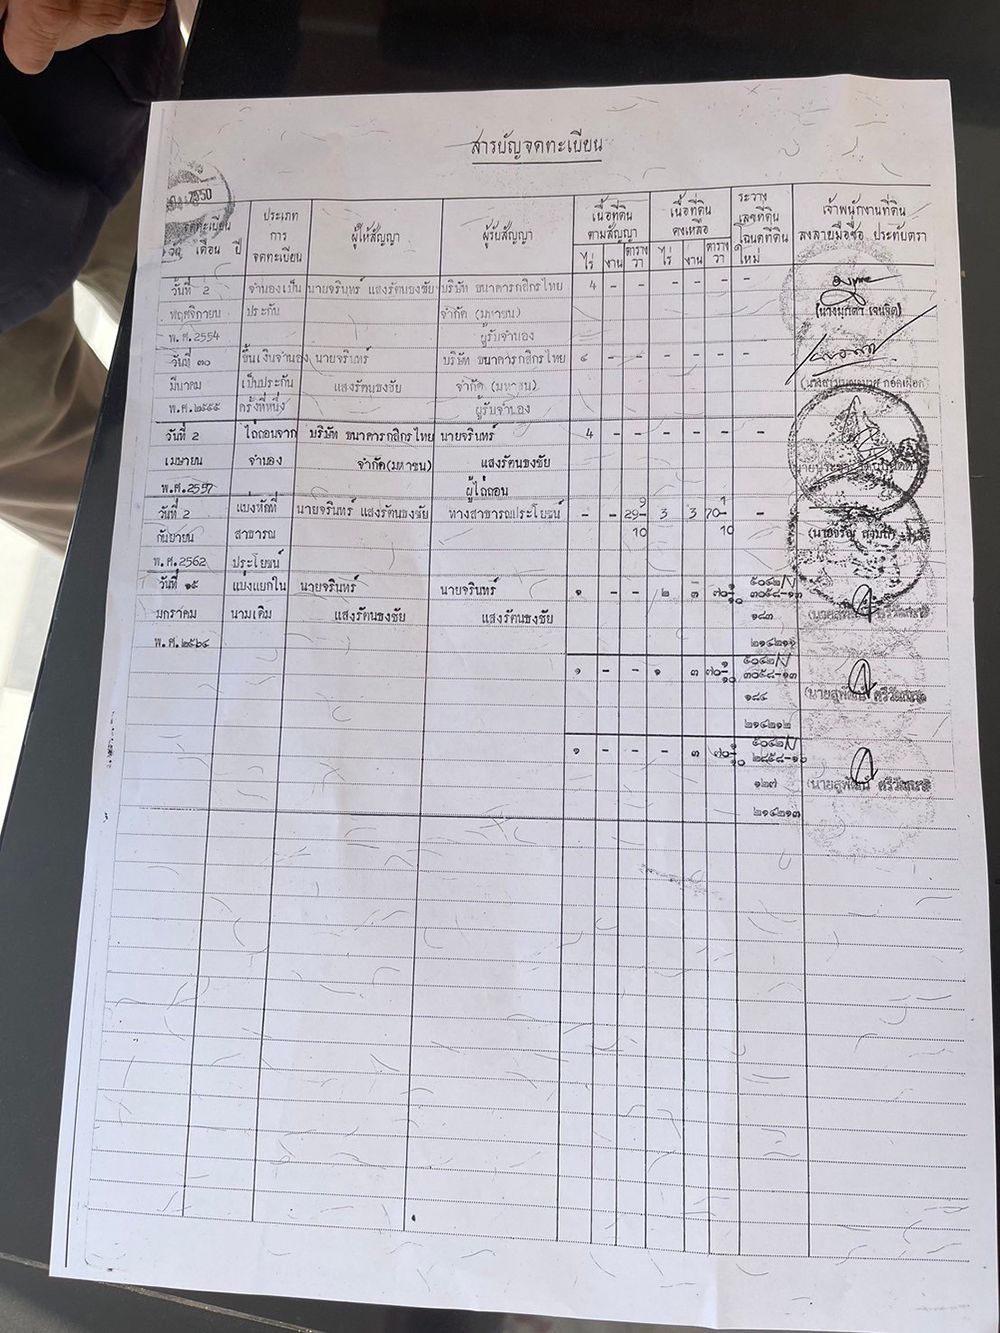 สารบัญจดทะเบียน
2550
จดทะเบียน
เดือน ปี
ประเภท
การ
จดทะเบียน
ผู้ให้สัญญา
ผู้รับสัญญา
เนื้อที่ดิน
ตามสัญญา
ไร่ งาน ตาราง
วา
เนื้อที่ดิน
คงเหลือ
ไร่ งาน ตาราง
วา
ระวาง
เลขที่ดิน
โฉนดที่ดิน
ใหม่
เจ้าพนักงานที่ดิน
ลงลายมือชื่อ ประทับตรา
วันที่ 2 จำนองเป็น นายจรินทร์ แสงรัตนธงชัย บริษัท ธนาคารกสิกรไทย 4 - - - - - -
พฤศจิกายน ประกัน จำกัด (มหาชน)
พ.ศ.2554 ผู้รับจำนอง
วันที่ ๓๐ ขึ้นเงินจำนอง นายจรินทร์ บริษัท ธนาคารกสิกรไทย ๔ - - - - - -
มีนาคม เป็นประกัน แสงรัตนธงชัย จำกัด (มหาชน)
พ.ศ.๒๕๕๕ ครั้งที่หนึ่ง ผู้รับจำนอง
วันที่ 2 ไถ่ถอนจาก บริษัท ธนาคารกสิกรไทย นายจรินทร์ 4 - - - - - -
เมษายน จำนอง จำกัด(มหาชน) แสงรัตนธงชัย
พ.ศ.2557 ผู้ไถ่ถอน
วันที่ 2 แบ่งหักที่ นายจรินทร์ แสงรัตนธงชัย ทางสาธารณประโยชน์ - - 29 9/10 3 3 70 1/10 -
กันยายน สาธารณ
พ.ศ.2562 ประโยชน์
วันที่ ๑๕ แบ่งแยกใน นายจรินทร์ นายจรินทร์ ๑ - - ๒ ๓ ๗๐ ๑/๑๐ ๕๐๔๒N
๓๐๕๘-๑๓
มกราคม นามเดิม แสงรัตนธงชัย แสงรัตนธงชัย ๑๘๓
พ.ศ.๒๕๖๔ ๒๑๔๒๑๑
๑ - - ๑ ๓ ๗๐ ๑/๑๐ ๕๐๔๒N
๓๐๕๘-๑๓
๑๘๔
๒๑๔๒๑๒
๑ - - - ๓ ๗๐ ๑/๑๐ ๕๐๔๒N
๒๘๕๘-๑๐
๑๒๗
๒๑๔๒๑๓